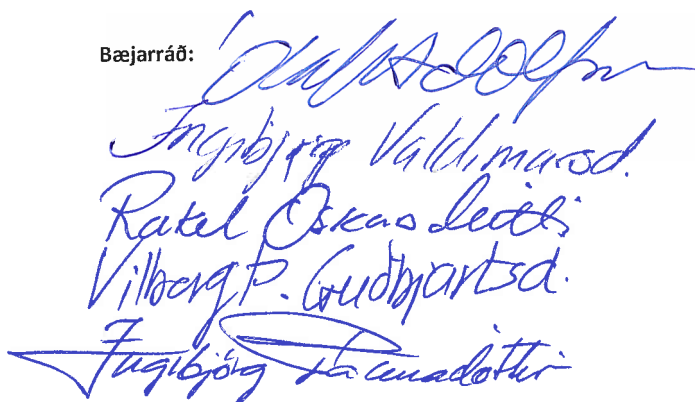 Bæjarráð: Ólafur Adolfsson
Ingibjörg Valdimarsd.
Rakel Óskarsdóttir
Vilborg Þ. Guðbjartsd.
Ingibjörg Pálmadóttir